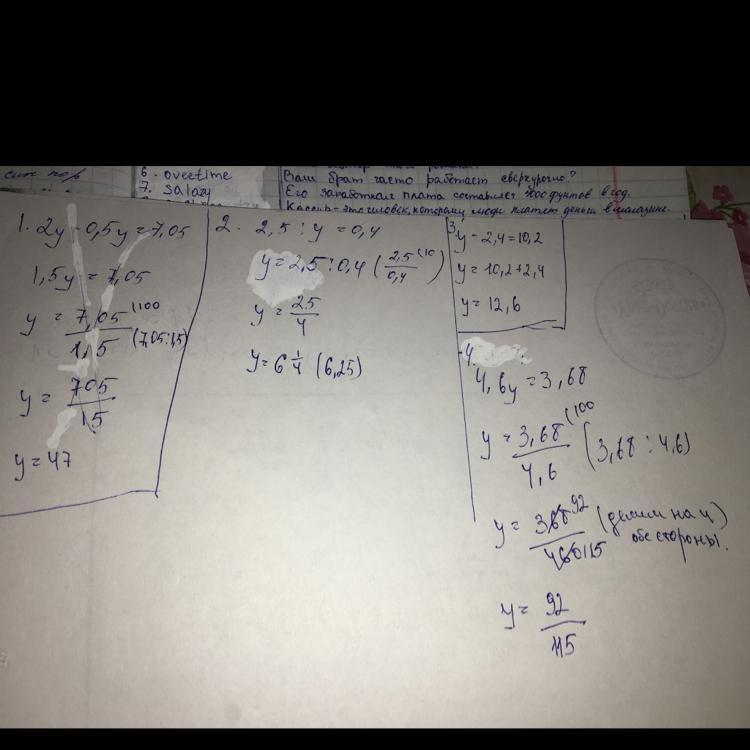 6. overtime
7. salary
Ваш брат часто работает сверхурочно?
Его заработная плата составляет 5000 фунтов в год.
Кассир - это человек, которому люди платят деньги в магазине.
1. 2y - 0,5y = 7,05
1,5y = 7,05
y = 7,05 (100 / 1,5 (7,05:1,5)
y = 705 / 15
y = 47
2. 2,5 : y = 0,4
y = 2,5 : 0,4 (2,5 (10 / 0,4)
y = 25 / 4
y = 6 1/4 (6,25)
3. y - 2,4 = 10,2
y = 10,2 + 2,4
y = 12,6
4.
4,6y = 3,68
y = 3,68 (100 / 4,6 (3,68 : 4,6)
y = 368 92 / 460 115 (делим на 4) обе стороны.
y = 92 / 115